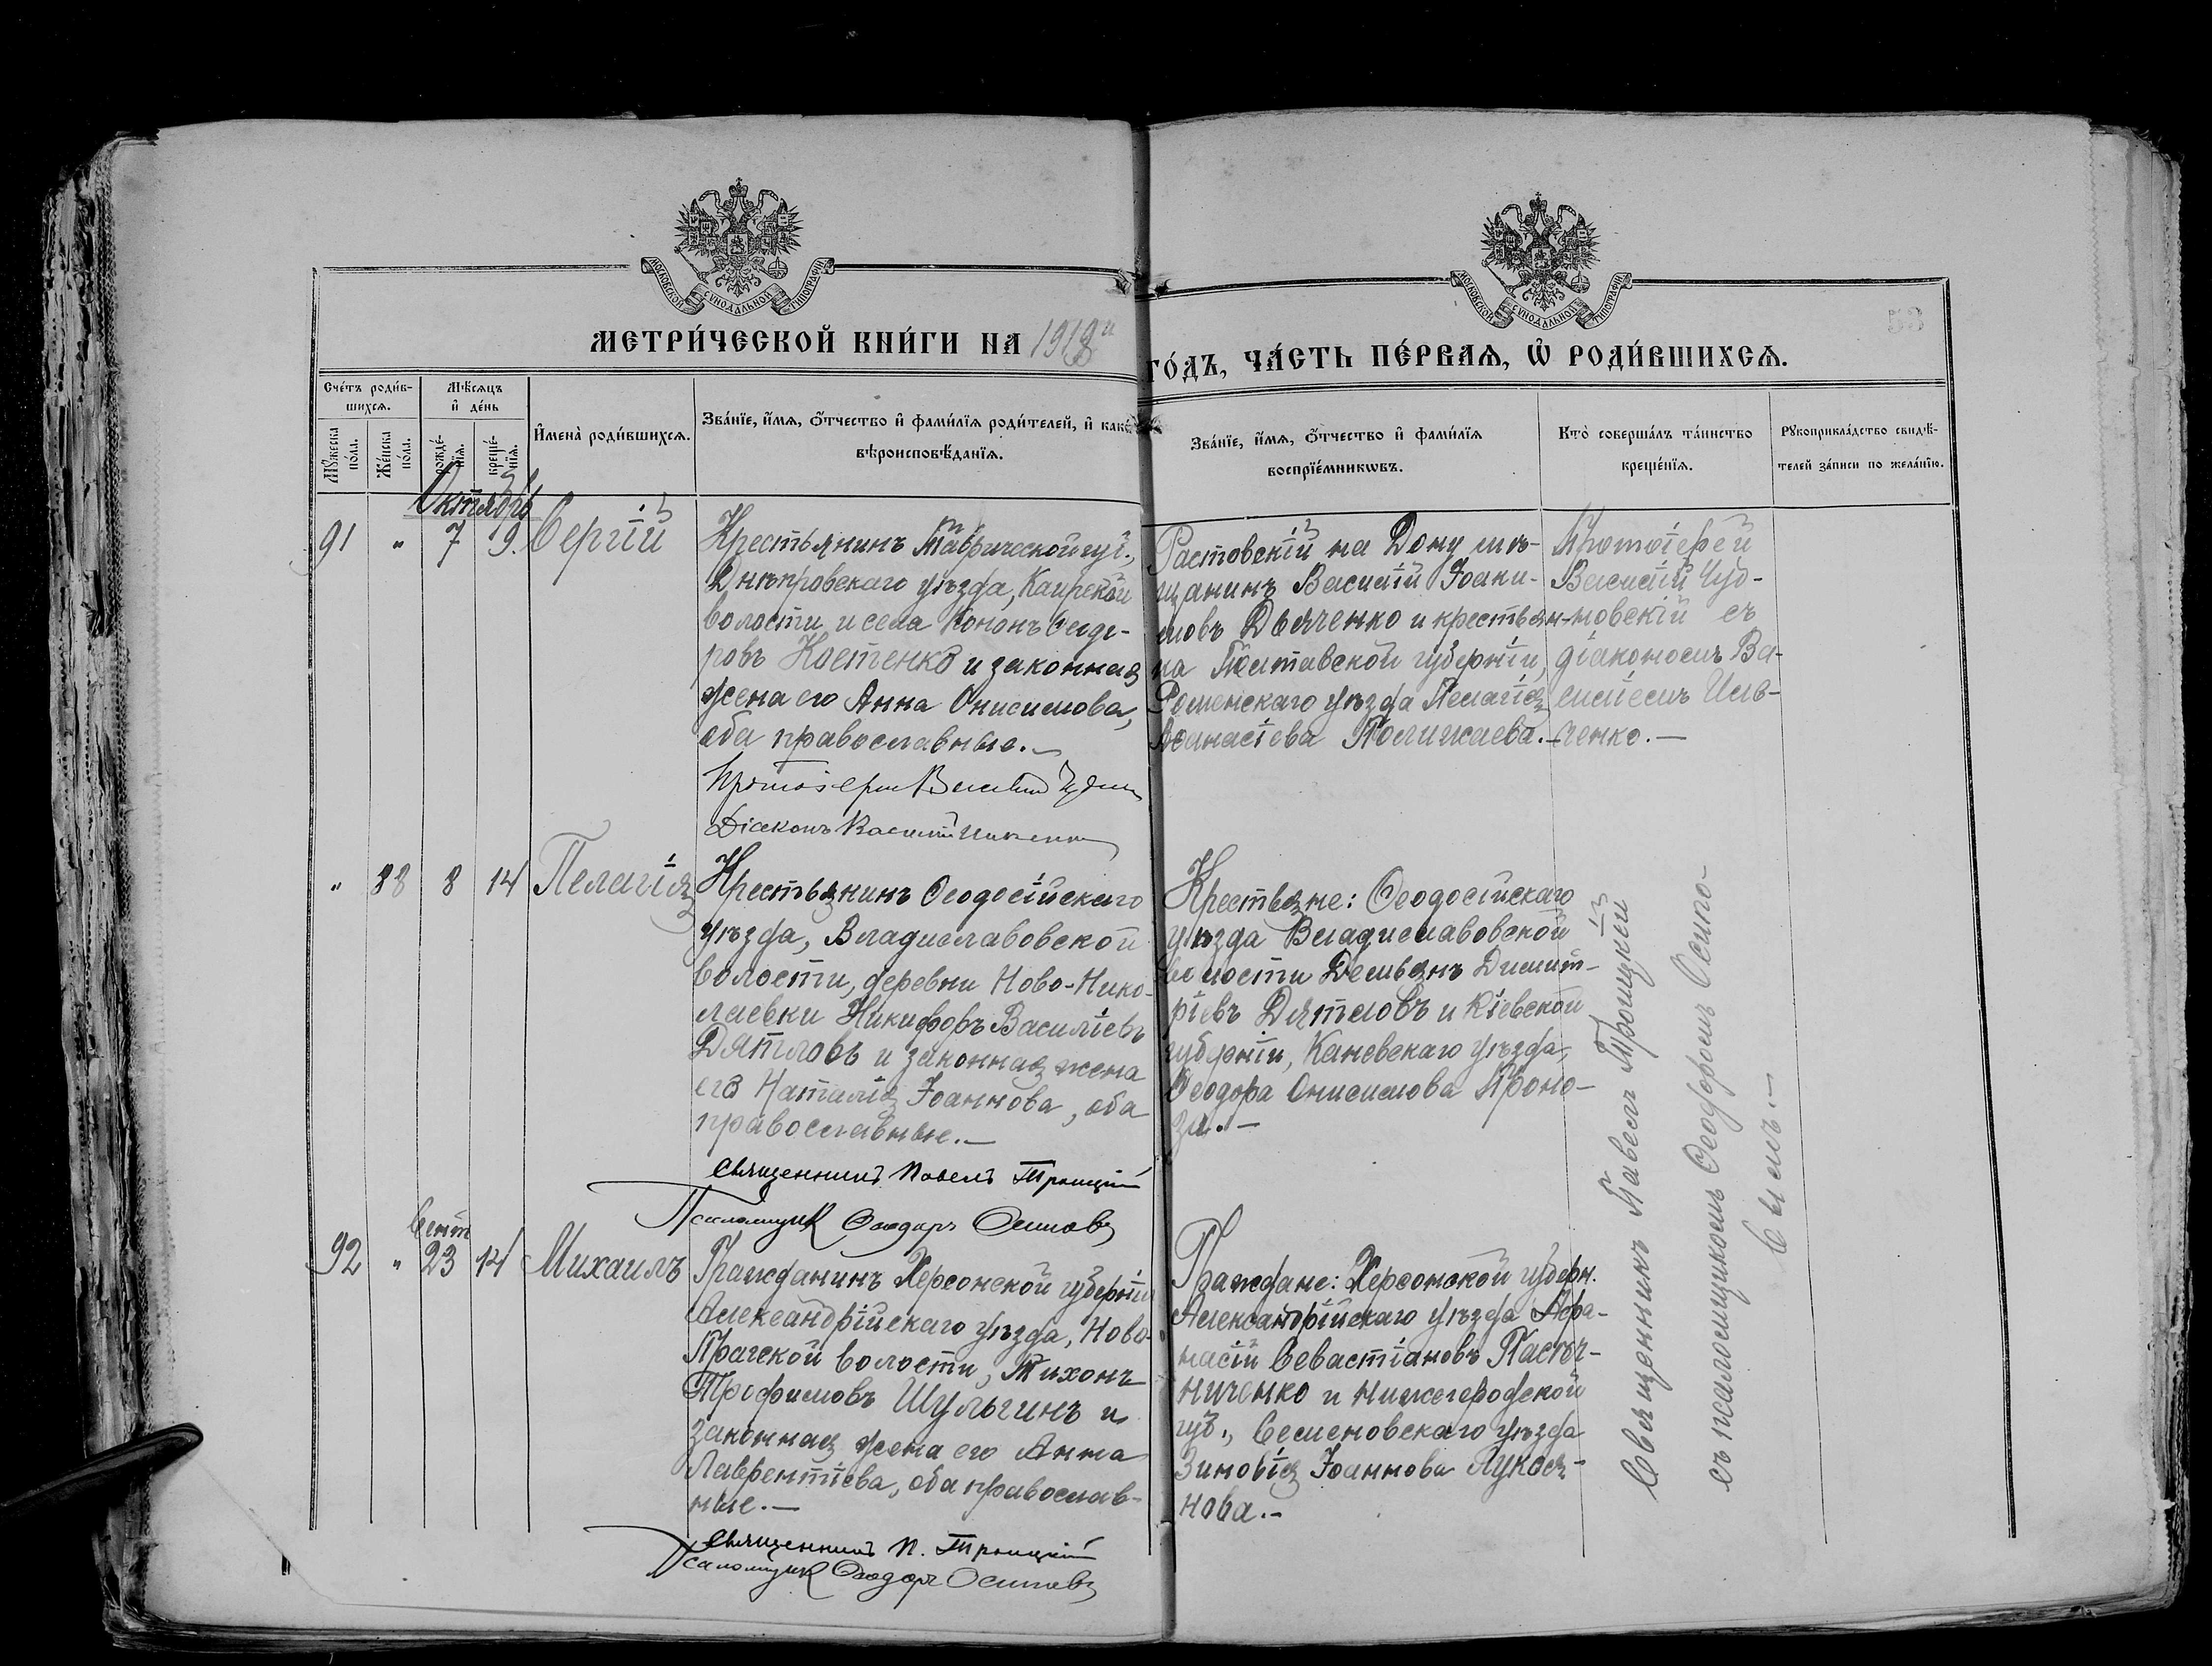 МОСКОВСКОЙ СУНОДАЛЬНОЙ ТИПОГРАФІИ
МОСКОВСКОЙ СУНОДАЛЬНОЙ ТИПОГРАФІИ
58
МЕТРИ́ЧЕСКОЙ КНИ́ГИ НА 1918й
ГО́ДЪ, ЧА́СТЬ ПЕ́РВАЯ, Ѡ҆ РОДИ́ВШИХСЯ.
Сче́тъ роди́в-
шихся.
Мѣ́сяцъ
и҆ де́нь
Мꙋ́жеска
по́ла.
Же́нска
по́ла.
рожде́-
нїя.
креще́-
нїя.
И҆мена̀ роди́вшихся.
Зва́нїе, и҆́мя, ѻ҆́тчество и҆ фами́лїя роди́телей, и҆ како́
вѣроисповѣ́данїя.
Зва́нїе, и҆́мя, ѻ҆́тчество и҆ фами́лїя
воспрїе́мникѡвъ.
Кто̀ соверша́лъ та́инство
креще́нїя.
Рꙋкоприкла́дство свидѣ́-
телей за́писи по жела́нїю.
Октябрь
91 " 7 9. Сергій
Крестьянинъ Таврической губ.,
Днѣпровскаго уѣзда, Каирской
волости и села Кононъ Ѳеодо-
ровъ Костенко и законная
жена его Анна Онисимова,
оба православные.—
Протоіерей Василій
Діаконъ Василій
Растовскій на Дону мѣ-
щанинъ Василій Іоаки-
мовъ Дьяченко и крестьян-
ка Полтавской губерніи,
Роменскаго уѣзда Пелагія
Аѳанасіева Полижаева.—
Протоіерей
Василій Чуд-
новскій съ
діакономъ Ва-
силіемъ Ив-
ченко.—
" 88 8 14 Пелагія
Крестьянинъ Ѳеодосійскаго
уѣзда, Владиславовской
волости, деревни Ново-Нико-
лаевки Никифоръ Василіевъ
Дятловъ и законная жена
его Наталія Іоаннова, оба
православные.—
Священникъ Павелъ Троицкій
Псаломщик Ѳеодоръ Осиповъ
Крестьяне: Ѳеодосійскаго
уѣзда Владиславовской
волости Демьянъ Димит-
ріевъ Дятловъ и Кіевской
губерніи, Каневскаго уѣзда,
Ѳеодора Онисимова Проно-
за.—
Сент
92 " 23 14 Михаилъ
Гражданинъ Херсонской губерніи
Александрійскаго уѣзда, Ново-
Прагской волости, Тихонъ
Трофимовъ Шульгинъ и
законная жена его Анна
Лаврентіева, оба православ-
ные.—
Священникъ П. Троицкій
Псаломщик Ѳеодоръ Осиповъ
Граждане: Херсонской губерн.
Александрійскаго уѣзда Аѳа-
насій Севастіановъ
и Нижегородской
губ., Семеновскаго уѣзда
Зиновія Іоаннова Лукоя-
нова.—
Священникъ Павелъ Троицкій
съ псаломщикомъ Ѳеодоромъ Осипо-
вымъ.—